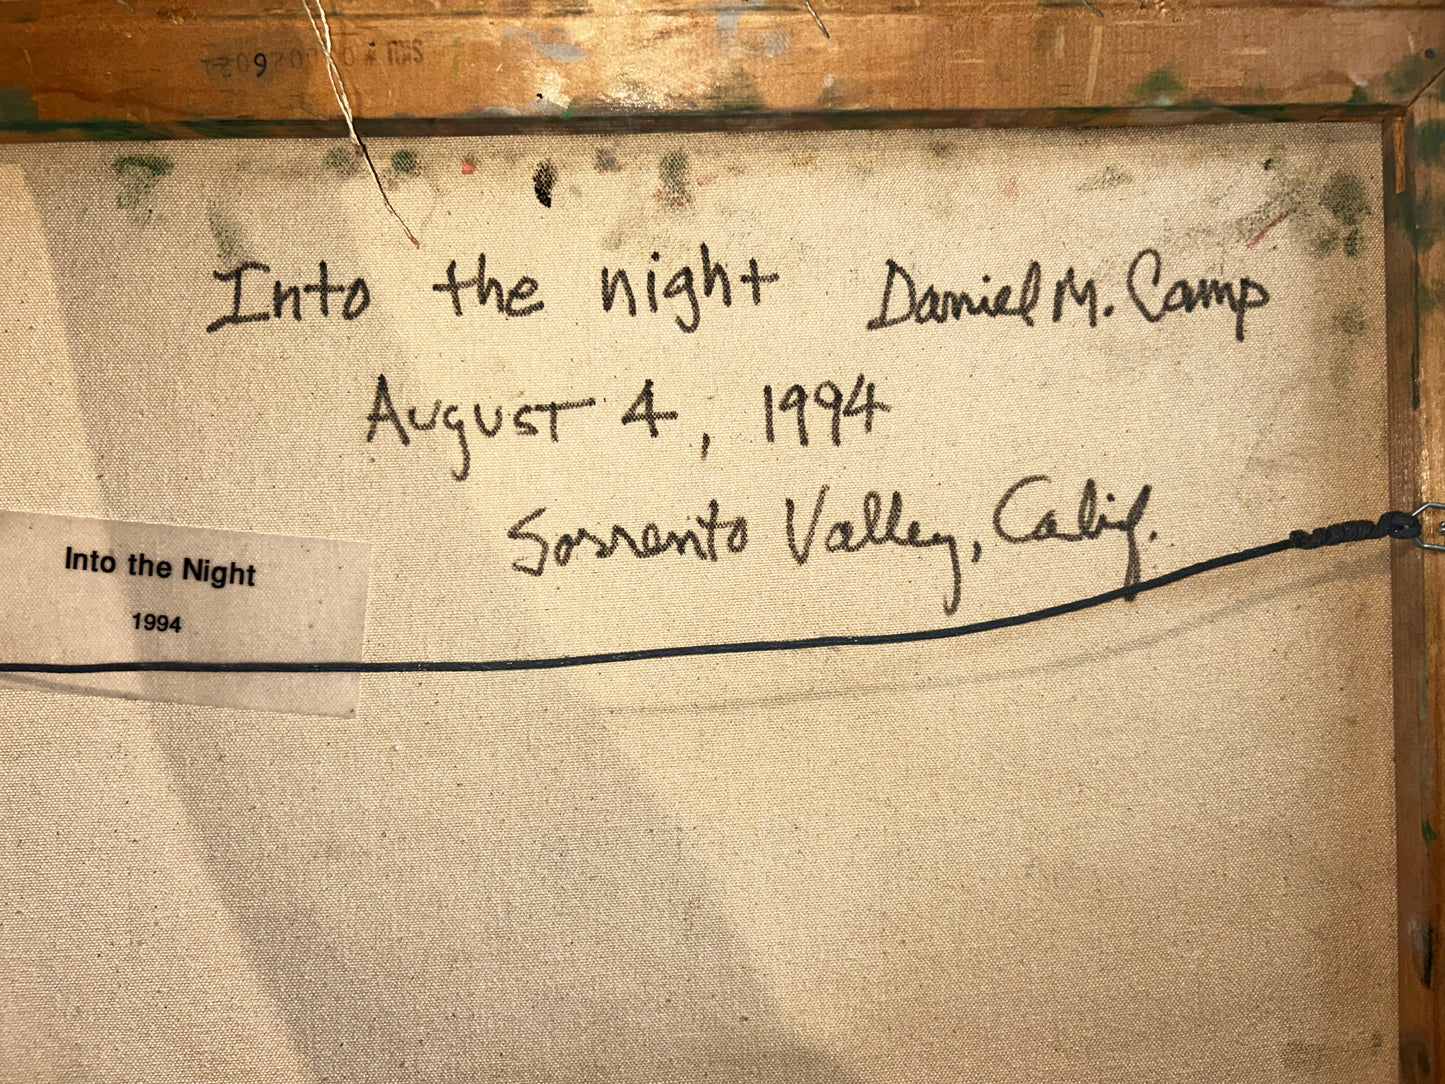 Into the night Daniel M. Camp
August 4, 1994
Sorrento Valley, Calif.
Into the Night
1994